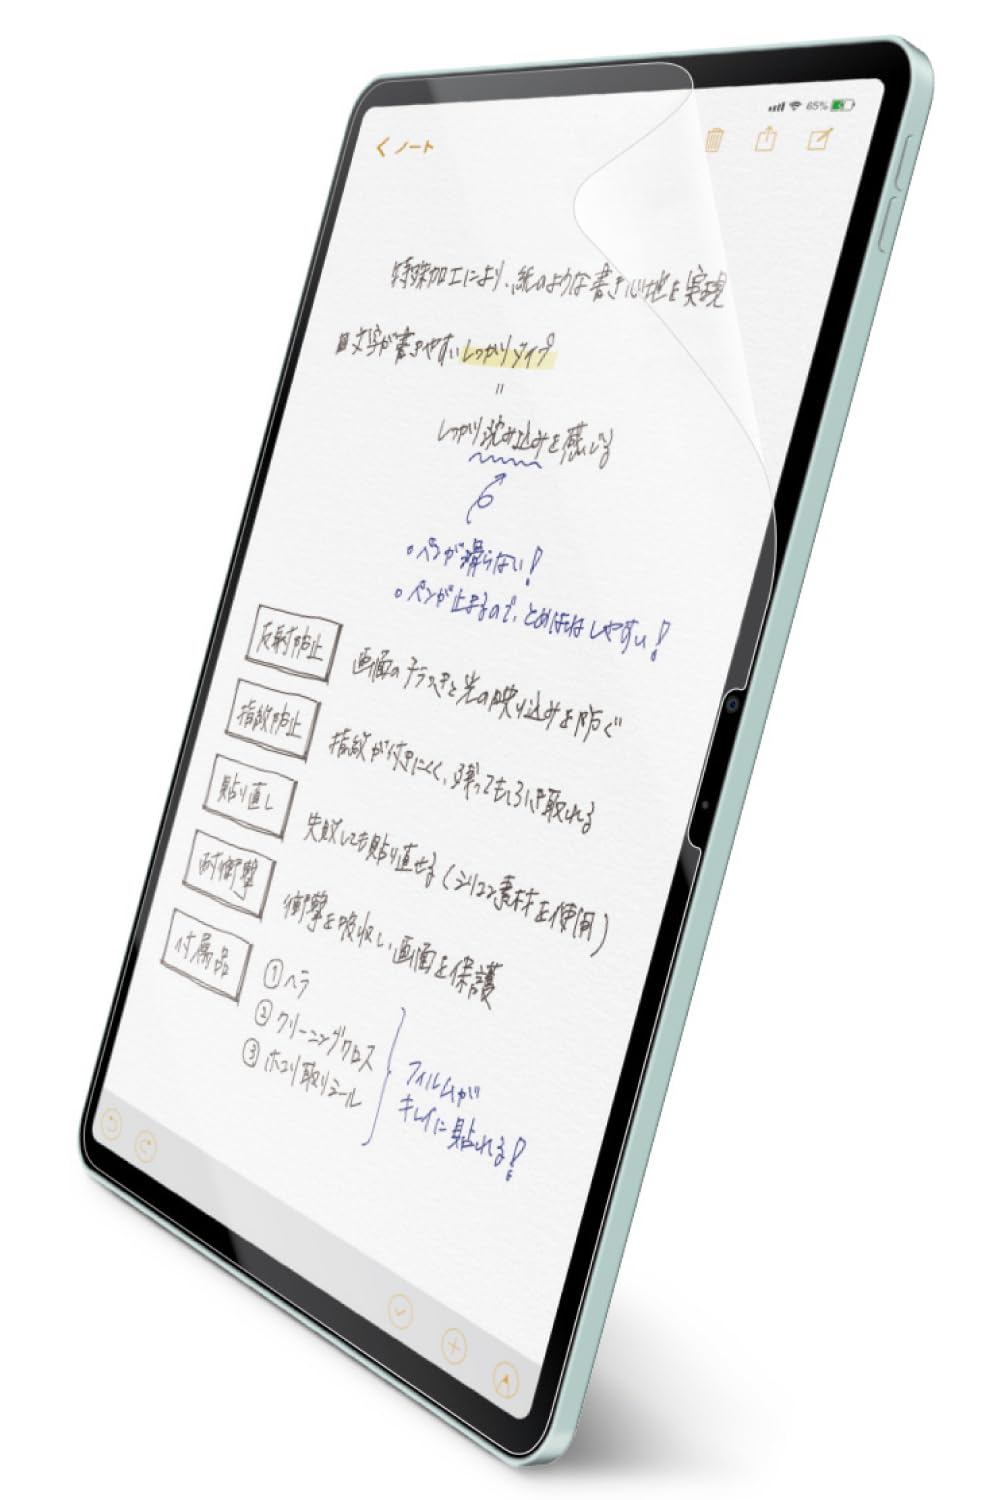 65%
ノート
特殊加工により、紙のような書き心地を実現
■文字が書きやすいしっかりタイプ
=
しっかり沈み込みを感じる
○ペンが滑らない!
○ペンが止まるので、とめはねしやすい!
反射防止 画面のチラつきと光の映り込みを防ぐ
指紋防止 指紋が付きにくく、残ってもふき取れる
貼り直し 失敗しても貼り直せる(シリコン素材を使用)
耐衝撃 衝撃を吸収し、画面を保護
付属品 ①ヘラ
②クリーニングクロス
③ホコリ取りシール
フィルムが
キレイに貼れる!